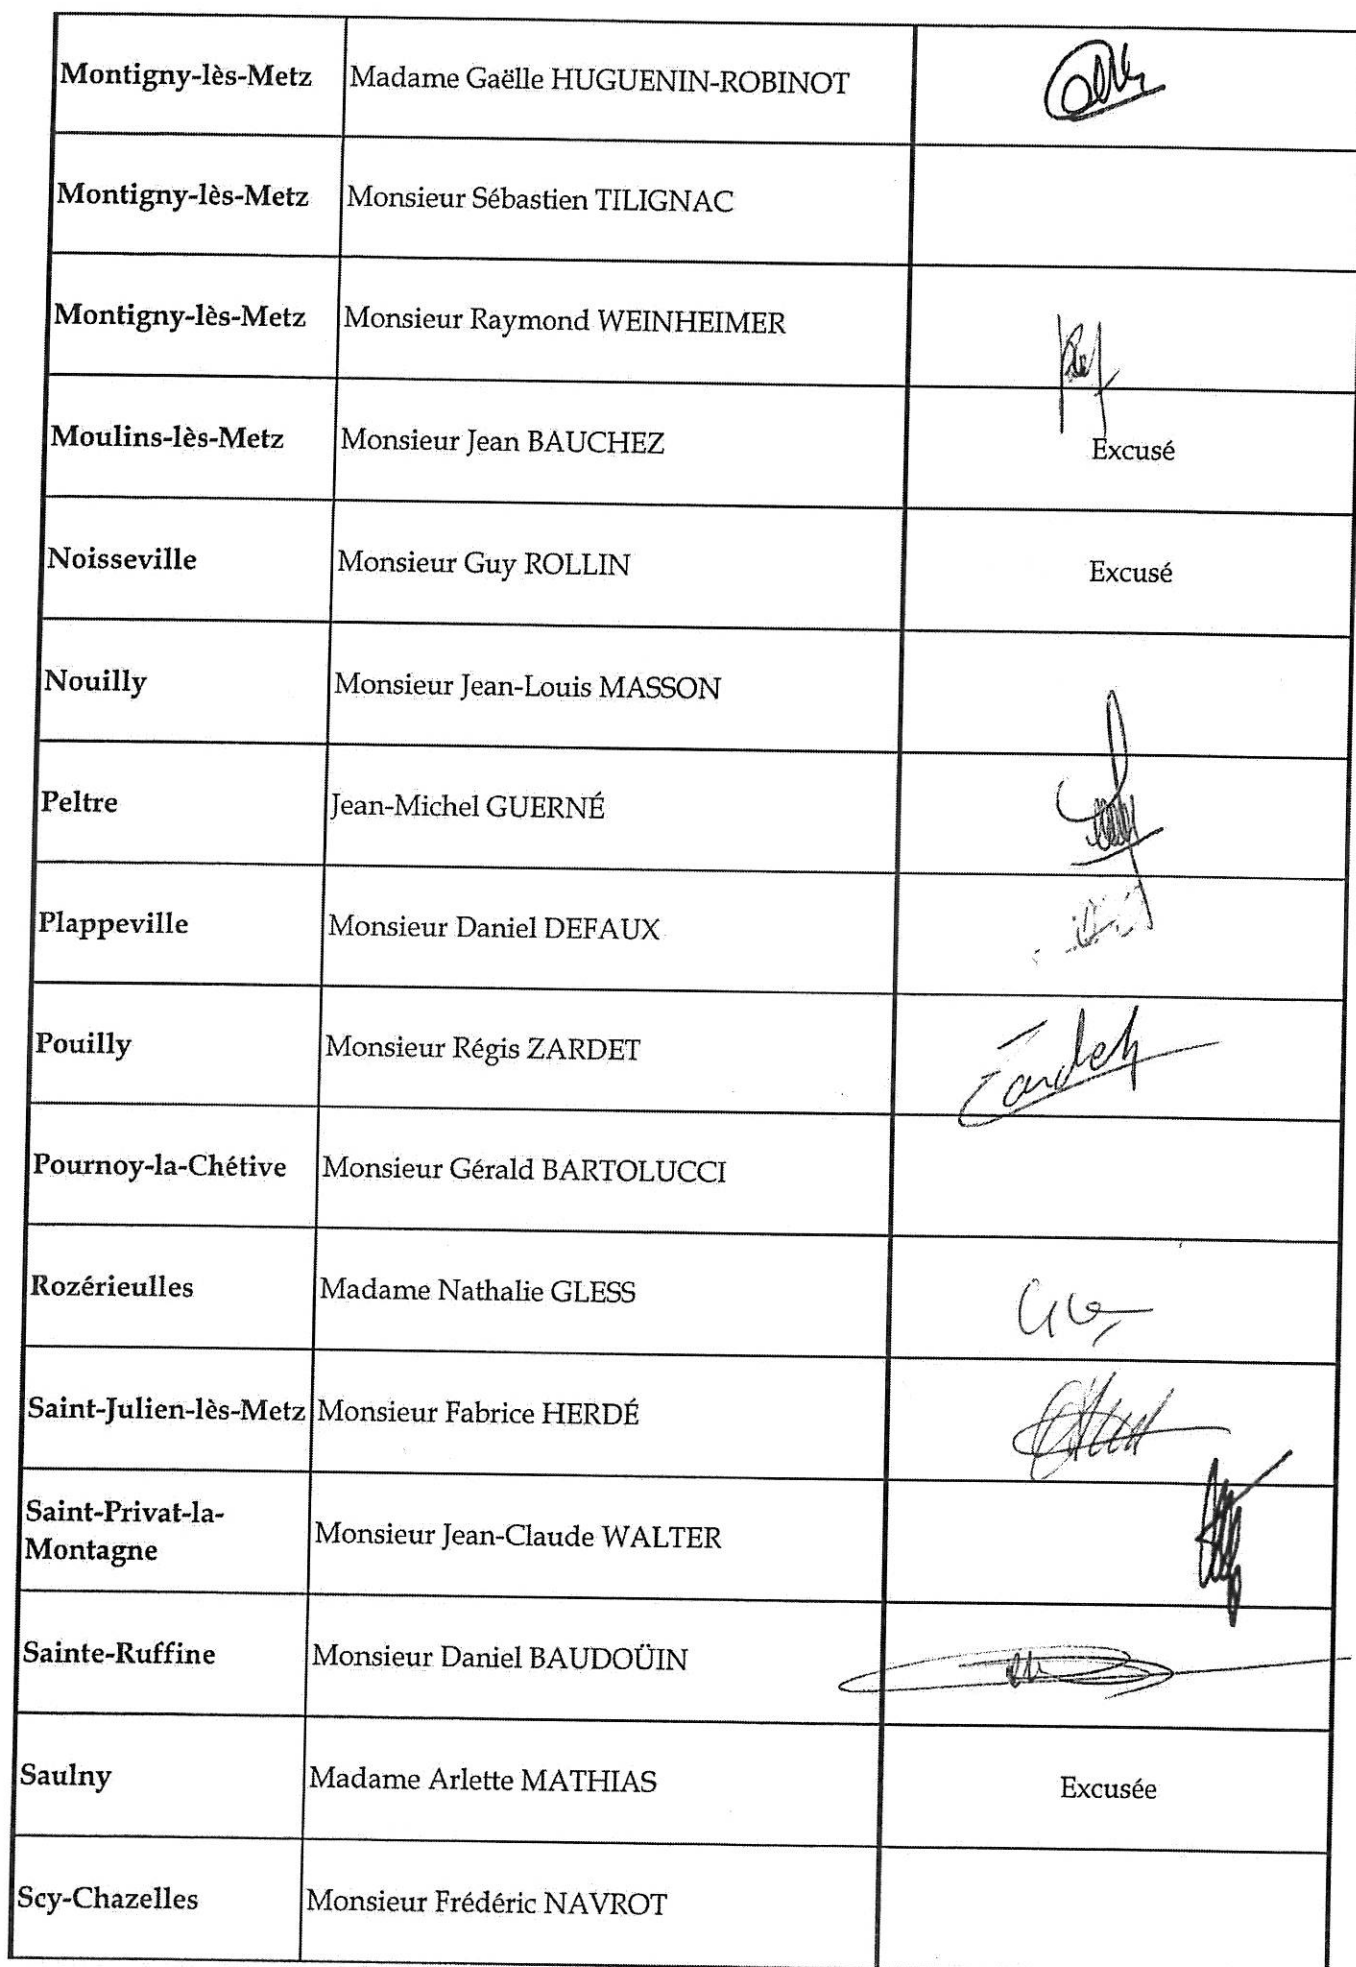 Montigny-lès-Metz Madame Gaëlle HUGUENIN-ROBINOT
Montigny-lès-Metz Monsieur Sébastien TILIGNAC
Montigny-lès-Metz Monsieur Raymond WEINHEIMER
Moulins-lès-Metz Monsieur Jean BAUCHEZ Excusé
Noisseville Monsieur Guy ROLLIN Excusé
Nouilly Monsieur Jean-Louis MASSON
Peltre Jean-Michel GUERNÉ
Plappeville Monsieur Daniel DEFAUX
Pouilly Monsieur Régis ZARDET Zardet
Pournoy-la-Chétive Monsieur Gérald BARTOLUCCI
Rozérieulles Madame Nathalie GLESS
Saint-Julien-lès-Metz Monsieur Fabrice HERDÉ
Saint-Privat-la-
Montagne Monsieur Jean-Claude WALTER
Sainte-Ruffine Monsieur Daniel BAUDOÜIN
Saulny Madame Arlette MATHIAS Excusée
Scy-Chazelles Monsieur Frédéric NAVROT